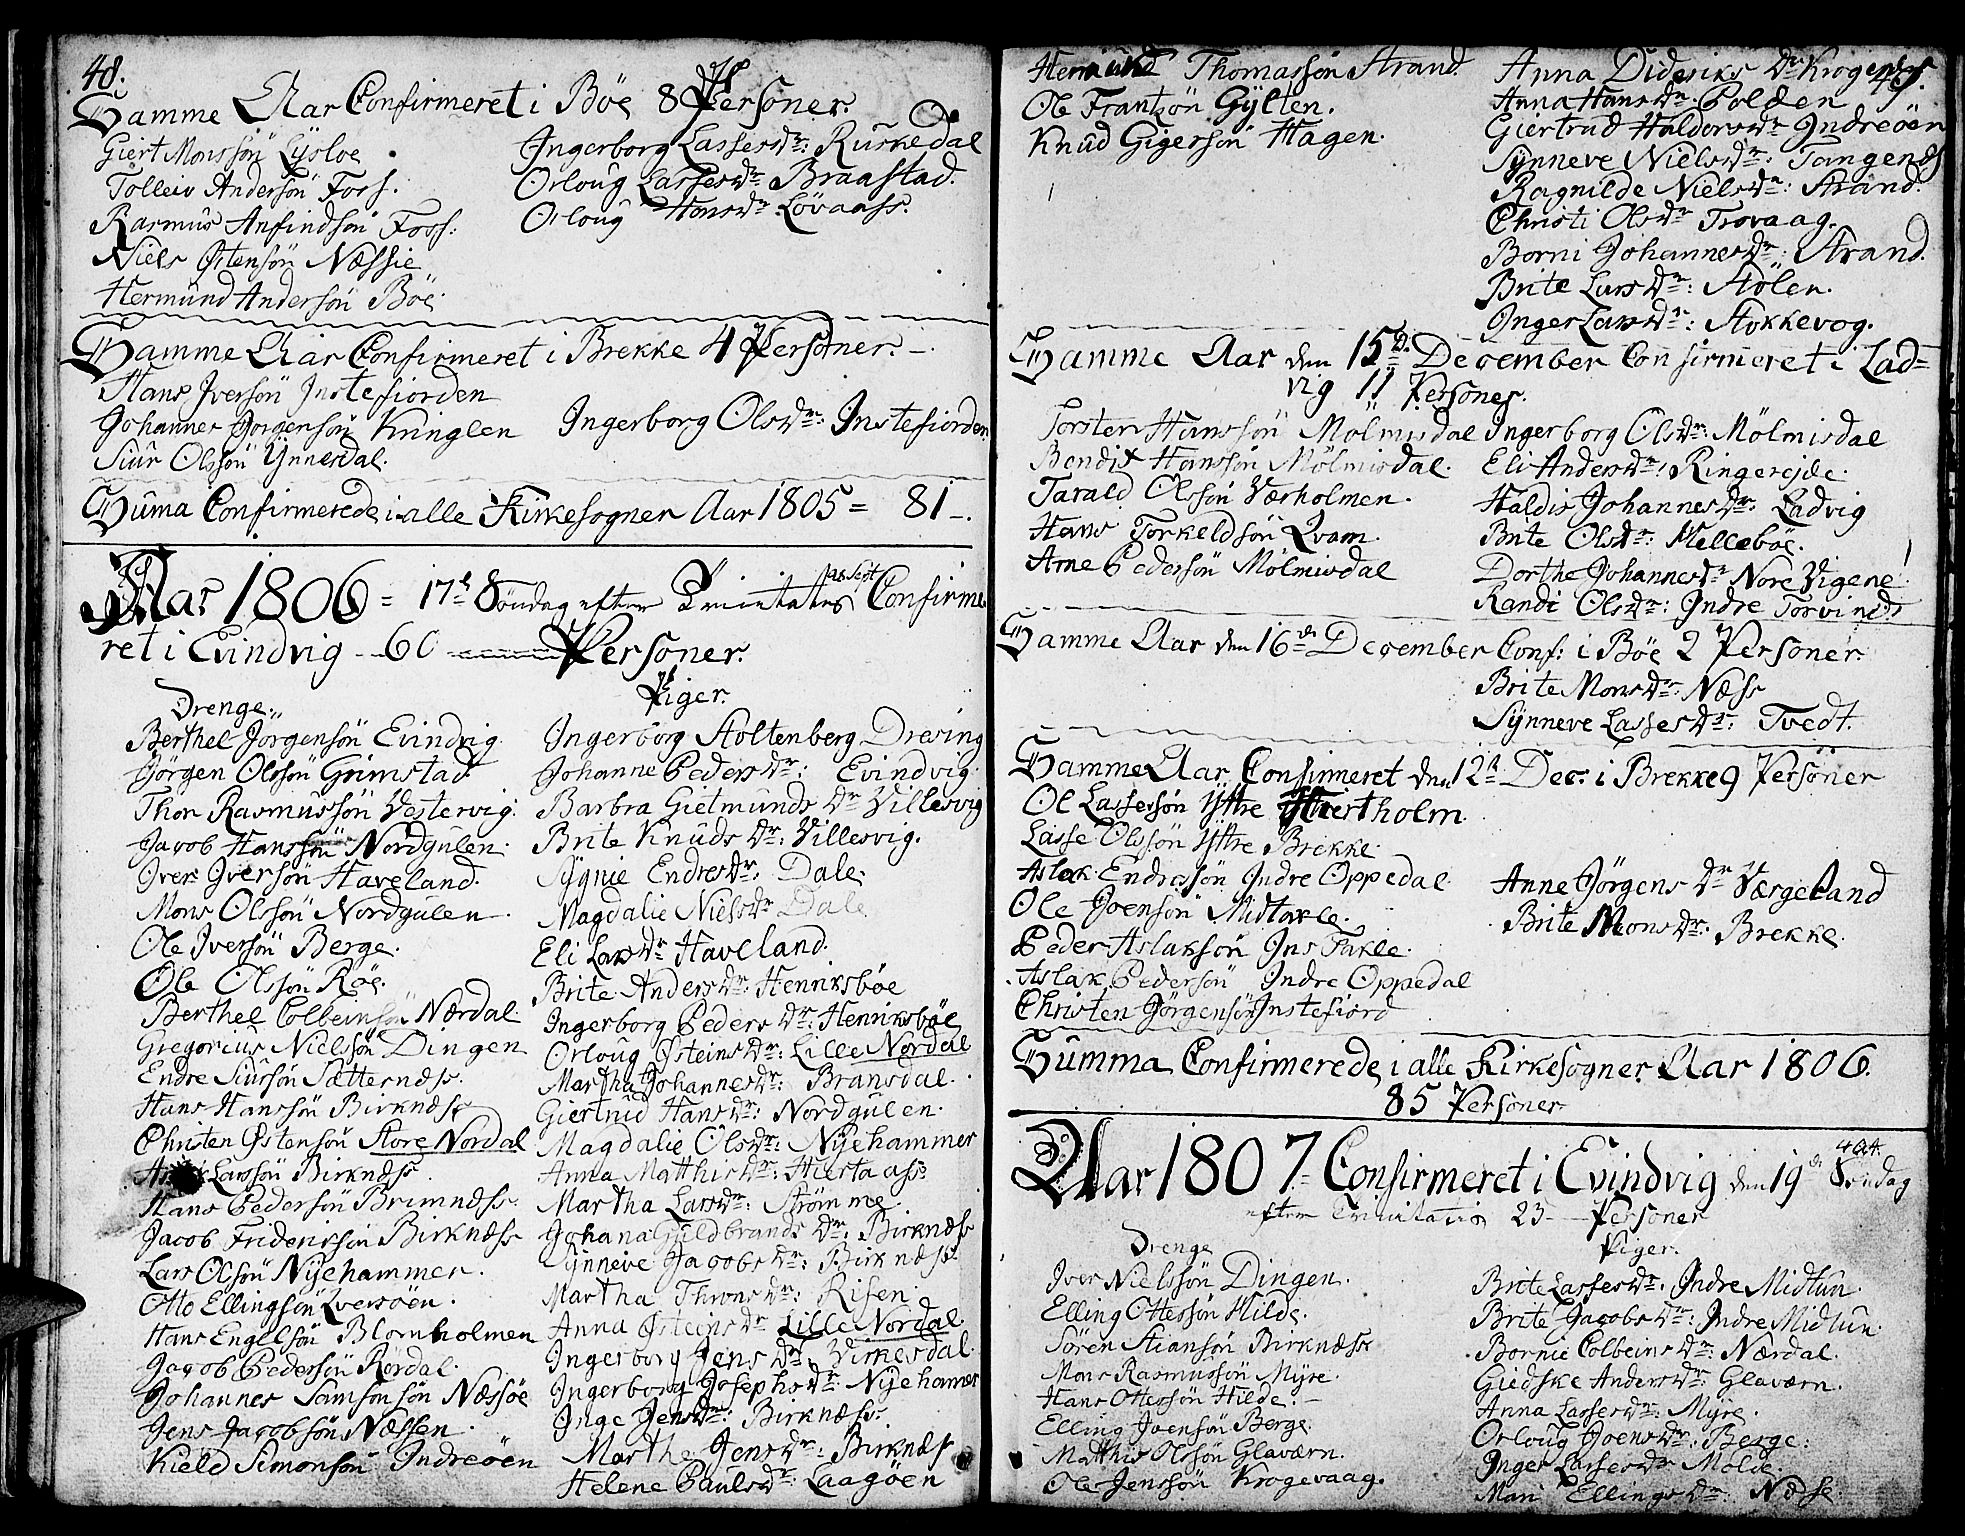 48.
Samme Aar Confirmeret i Böe 8 Personer.
Giert Monssön Lÿsloe
Tolleiv Andersön Forss.
Rasmus Anfindsön Forss.
Niels Østensön Næssie
Hermund Andersön Böe
Ingerborg Lassesdr: Ruskedal
Orloug Lassesdr: Braastad.
Orloug Hansdr: Lövaass.
Samme Aar Confirmeret i Brekke 4 Personer.
Hans Iversön Instefiorden
Johannes Jörgensön Kringlen
Siur Olssön Ÿnnesdal.
Ingerborg Olsdr: Instefiorden
Suma Confirmerede i alle Kirkesogner Aar 1805 = 81.
Aar 1806 = 17d Söndag efter Trinitatis 28 Sept Confirme-
ret i Evindvig 60 Personer.
Drenge.
Berthel Jörgensön Evindvig
Jörgen Olssön Grimstad
Thor Rasmussön Vestervig.
Jacob Hanssön Nordgulen.
Iver Iversön Haveland.
Mons Olssön Nordgulen.
Ole Iversön Berge.
Ole Olssön Röe.
Berthel Colbeinsön Nærdal
Gregorius Nielssön Dingen
Endre Siursön Sætternæss.
Hans Hanssön Birknæss
Christen Østensön Store Nordal
Larssön Birknæss
Hans Pedersön Brimnæss.
Jacob Fridrikssön Birknæss
Lars Olsön Nÿehammer.
Otto Ellingsön Qversöen.
Hans Engelsön Blomholmen
Jacob Pedersön Rördal.
Johannes Samsonsön Næssöe
Jens Jacobsön Næssen.
Kield Simonsön Indreöen
Piger.
Ingerborg Stoltenberg Dresing
Johanne Pedersdr: Evindvig
Barbra Gietmundsdr Villesvig
Brite Knudsdr: Villesvig.
Sÿgnie Endresdr: Dale.
Magdalie Nielsdr Dale
Eli Larsdr Haveland.
Brite Andersdr: Henriksböe
Ingerborg Pedersdr: Henriksböe
Orloug Østeinsdr: Lille Nordal
Martha Johannesdr: Bransdal.
Giertrud Hansdr: Nordgulen.
Magdalie Olsdr: Nÿehammer
Anna Matthisdr: Hiertaass
Martha Larsdr: Strömme
Johana Guldbrandsdr: Birknæss
Sÿnneve Jacobsdr: Birknæss.
Martha Thronsdr: Risen.
Anna Østeensdr Lille Nordal
Ingerborg Jensdr: Virkesdal.
Ingerborg Josephsdr: Nÿehamer
Inge Jensdr: Birknæss.
Marthe Jensdr: Birknæss
Helene Paulsdr: Laagöen
Hermund Thomassön Strand.
Ole Frantsön Gÿlten.
Knud Gigersön Hagen.
Anna Dideriksdr Krogen
Anna Hansdr: Polden
Giertrud Haldorsdr Indreöen
Sÿnneve Nielsdr: Tangen
Ragnilde Nielsdr: Strand.
Christi Olsdr Trovaag.
Borni Johannesdr: Strand.
Brite Larsdr: Stölen.
Inger Larsdr: Stokkevog.
Samme Aar den 15d December Confirmeret i Lad=
vig 11 Personer.
Torsten Hanssön Mölmisdal
Bendix Hanssön Mölmisdal.
Tarald Olssön Værholmen.
Hans Torkeldsön Qvam.
Arne Pedersön Mölmisdal
Ingerborg Olsdr: Mölmisdal
Eli Andersdr: Ringerejde.
Haldis Johannesdr: Ladvig
Brite Olsdr: Melleböe.
Dorthe Johannesdr Nore Vigene.
Randi Olsdr: Indre Torvind
Samme Aar den 16de December Conf: i Böe 2 Personer.
Brite Monsdr: Næss
Sÿnneve Lassesdr: Tvedt.
Samme Aar Confirmeret den 12d Dec: i Brekke 9 Personer
Ole Lassesön Ÿttre Hiertholm.
Lasse Olssön Ÿttre Brekke.
Aslak Endresön Indre Oppedal
Ole Joensön Midtakle.
Peder Aslaksön Ins Takle.
Aslak Pedersön Indre Oppedal
Christen Jörgensön Instefiord
Anne Jörgensdr Værgeland
Brite Monsdr: Brekke.
Summa Confirmerede i alle Kirkesogner Aar 1806.
85 Personer
Aar 1807 = Confirmeret i Evindvig den 19d 4 Oct. Söndag
efter Trinitatis 23 Personer
Drenge
Iver Nielssön Dingen.
Elling Ottessön Hilde.
Sören Stiansön Birknæss
Mons Rasmussön Mÿre.
Hans Ottessön Hilde.
Elling Joensön Berge.
Matthis Olssön Glaværn.
Ole Jenssön Krogevaag.
Piger.
Brite Lassesdr: Indre Midtun.
Brite Jacobsdr: Indre Midtun.
Bornie Colbeinsdr: Nærdal.
Giedske Andersdr: Glaværn.
Anna Lassesdr: Mÿre.
Orloug Joensdr: Berge.
Inger Lassesdr Molde.
Mari Ellingsdr: Næse